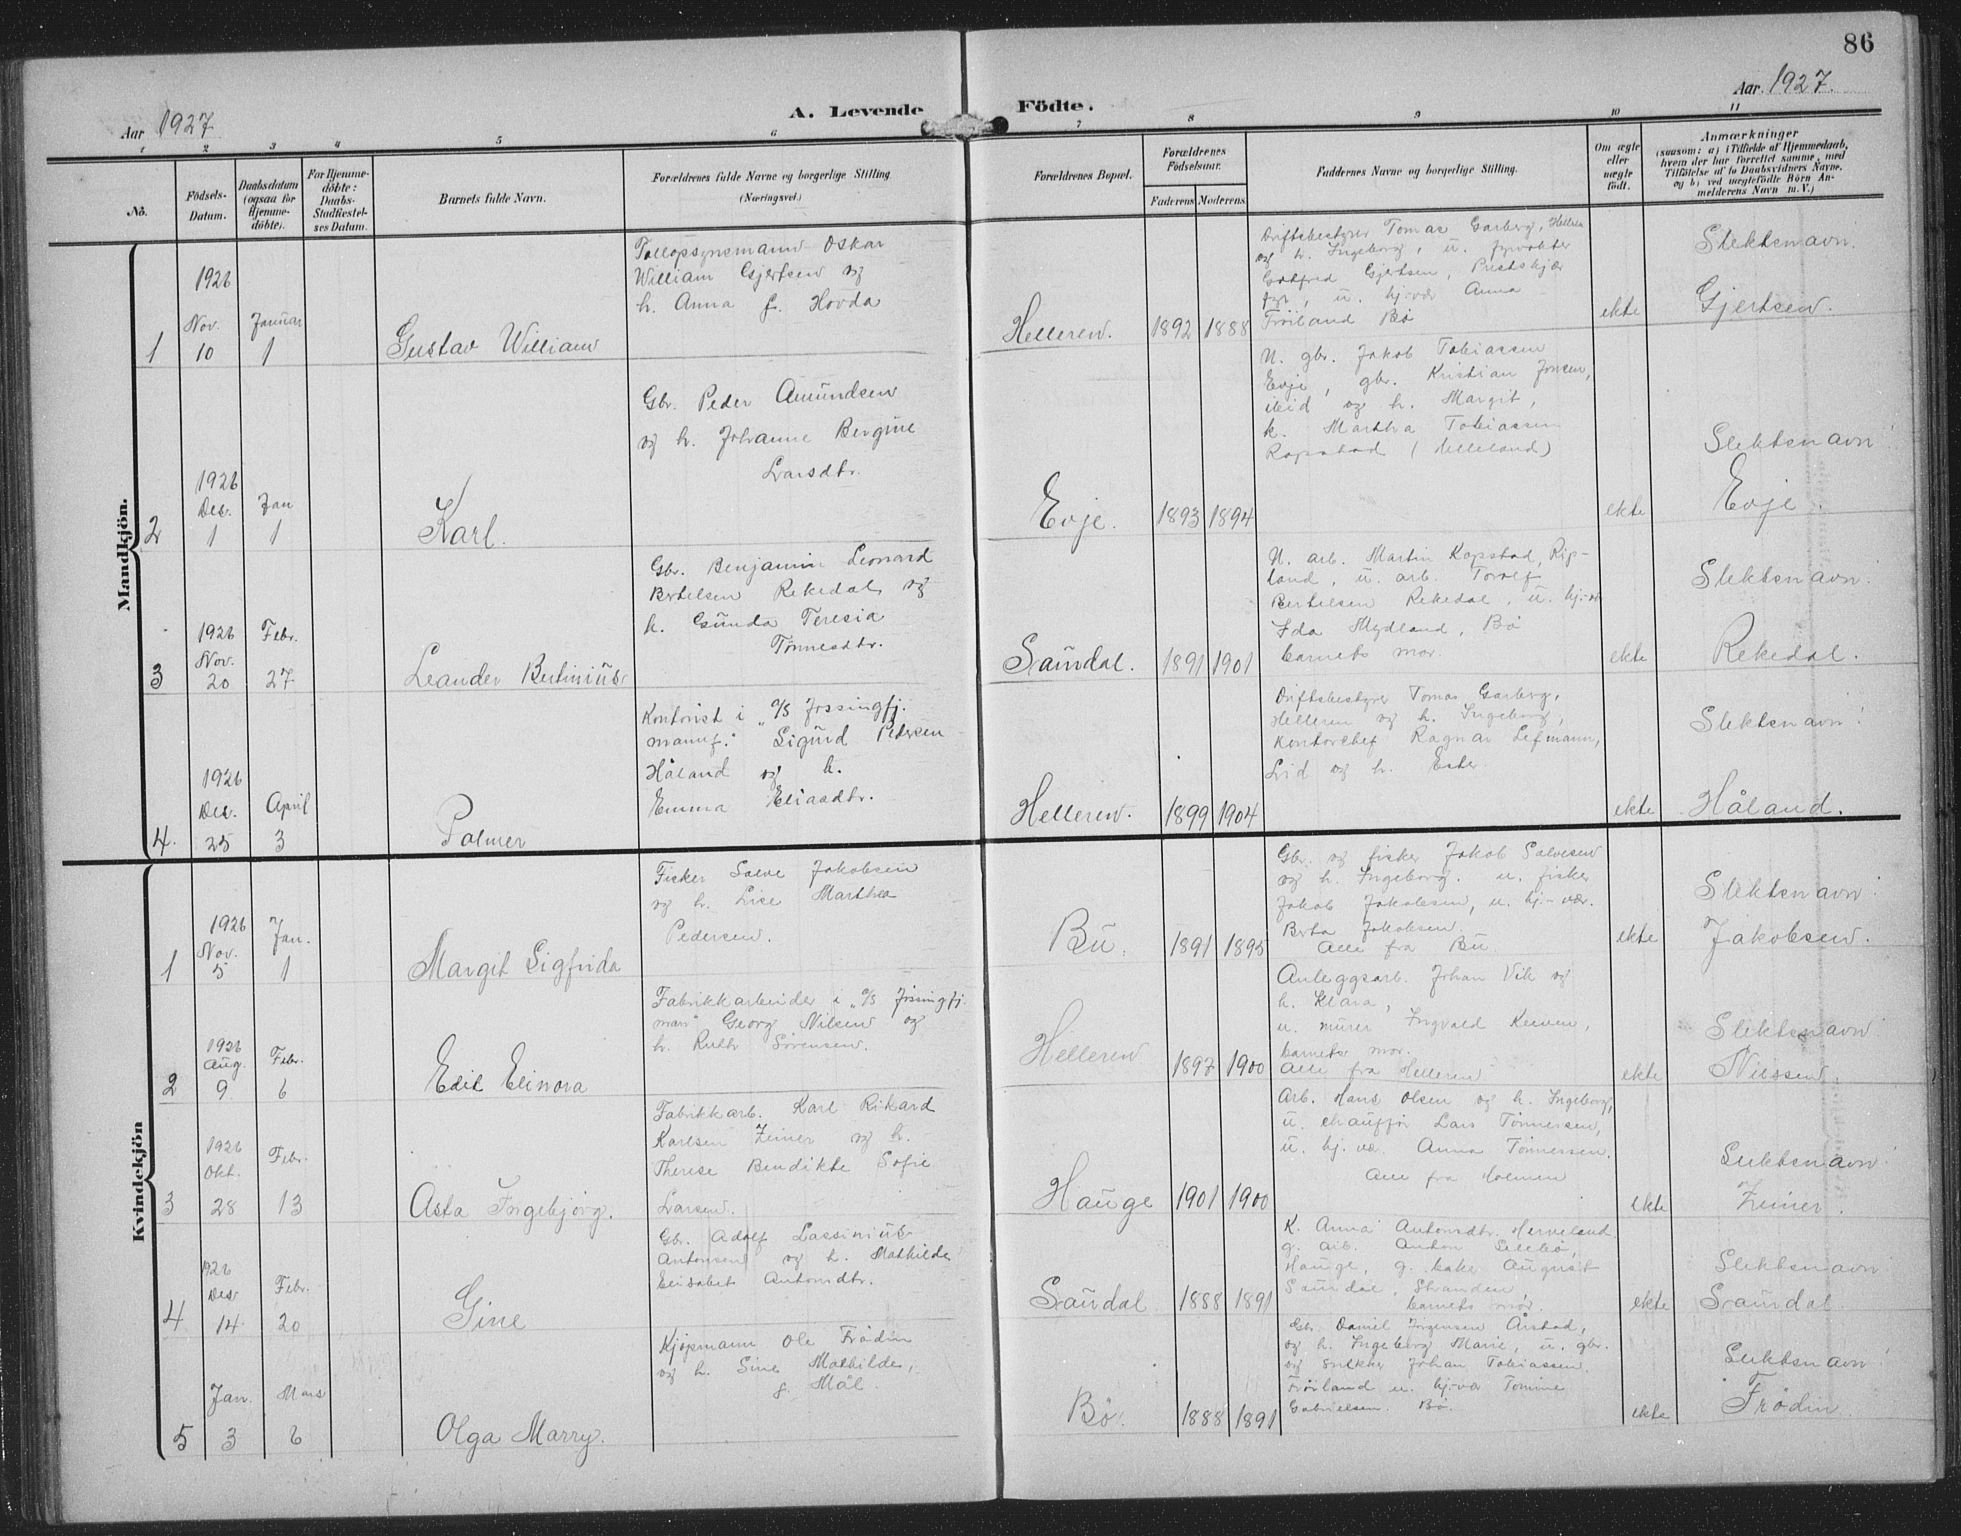 86
Aar 1927
A. Levende Födte.
Aar 1927.
1 2 3 4 5 6 7 8 9 10 11
No.
Födsels-
Datum.
Daabsdatum
(ogsaa for
Hjemme-
döbte).
For Hjemme-
döbte:
Daabs-
Stadfæstel-
ses Datum.
Barnets fulde Navn.
Forældrenes fulde Navne og borgerlige Stilling.
(Næringsvei.)
Forældrenes Bopæl.
Forældrenes
Födselsaar.
Faderens Moderens
Faddernes Navne og borgerlige Stilling.
Om ægte
eller
uægte
født.
Anmærkninger
(saasom: a) i Tilfælde af Hjemmedaab,
hvem der har forrettet samme, med
Tilföielse af to Daabsvidners Navne,
og b) ved uægtefödte Börn An-
melderens Navn m. V.)
Mandkjön.
1
1926
Nov.
10
Januar
1
Gustav William
Tollopsynsmann Oskar
William Gjertsen og
h. Anna f. Hovda
Helleren.
1892
1888
Driftsbestyrer Tomas Garberg, Helleren
og h. Ingeborg, u. fyrvokter
Gotfred Gjertsen,
fyr, u. hj-vær Anna
Frøiland Bø
ekte
Slektsnavn:
Gjertsen.
2
1926
Des.
1
Jan
1
Karl.
Gbr. Peder Amundsen
og h. Johanne Bergine
Larsdtr.
Evje.
1893
1894
U. gbr. Jakob Tobiassen
Evje, gbr. Kristian Jonsen,
ibid og h. Margit,
k. Martha Tobiassen
Rapstad (Helleland)
ekte
Slektsnavn:
Evje.
3
1926
Nov.
20
Febr.
27
Leander Bertinius
Gbr. Benjamin Leonard
Bertelsen Rekedal og
h. Gunda Teresia
Tønnesdtr.
Saundal.
1891
1901
U. arb. Martin Kapstad, Rip-
land, u. arb. Torolf
Bertelsen Rekedal, u. hj.-vær
Ida Mydland, Bø
barnets mor.
ekte
Slektsnavn:
Rekedal.
4.
1926
Des.
25
April
3
Palmer
Kontorist i "A/S Jøssingfj.
manuf." Sigurd Pedersen
Håland og h.
Emma Eliasdtr.
Helleren.
1899
1904
Driftsbestyrer Tomas Garberg,
Helleren og h. Ingeborg,
Kontorchef Ragnar Lefmann,
Lid og h. Ester.
ekte
Slektsnavn:
Håland.
Kvindekjön
1
1926
Nov.
5
Jan.
1
Margit Sigfrida
Fisker Salve Jakobsen
og h. Lise Marthea
Pedersen.
Bu.
1891
1895
Gbr. og fisker Jakob Salvesen
og h. Ingeborg. u. fisker
Jakob Jakobsen, u. hj.-vær.
Berta Jakobsen,
Alle fra Bu.
ekte
Slektsnavn:
Jakobsen.
2
1926
Aug.
9
Febr.
6
Edil Elinora
Fabrikkarbeider i "A/S Jøssingfj.
man" Georg Nilsen og
h. Ruth Sørensen.
Helleren
1897
1900
Anleggsarb. Johan Vik og
h. Klara,
u. murer Ingvald
barnets mor.
Alle fra Helleren
ekte
Slektsnavn
Nilssen.
3
1926
Okt.
28
Febr.
13
Asta Ingebjørg.
Fabrikkarb. Karl Rikard
Karlsen Zeiner og h.
Therese Bendikte Sofie
Larsen.
Hauge
1901
1900
Arb. Hans Olsen og h. Ingeborg,
u. chauffør Lars Tønnessen,
u. hj. vær. Anna Tønnessen.
Alle fra Holmen
ekte
Slektsnavn:
Zeiner.
4
1926
Des.
14
Febr.
20
Gine
Gb. Adolf Lassinius
Antonsen og h. Mathilde
Elisabet Antonsdtr.
Saundal
1888
1891
K. Anna Antonsdtr.
g. arb. Anton
Hauge, g. baker August
Saundal, Stranden
barnets mor.
ekte
Slektsnavn
Saundal.
5
Jan.
3
Mars
6
Olga Marry.
Kjøpmann Ole Frødin
og h. Sine Mathilde,
f. Mål.
Bø.
1888
1891
Gbr. Daniel Jørgensen Årstad,
og h. Ingeborg Marie, u. gbr.
og snekker Johan Tobiassen
Frøiland u. hj-vær Tomine
Gabrielsen. Bø.
ekte
Slektsnavn
Frødin.